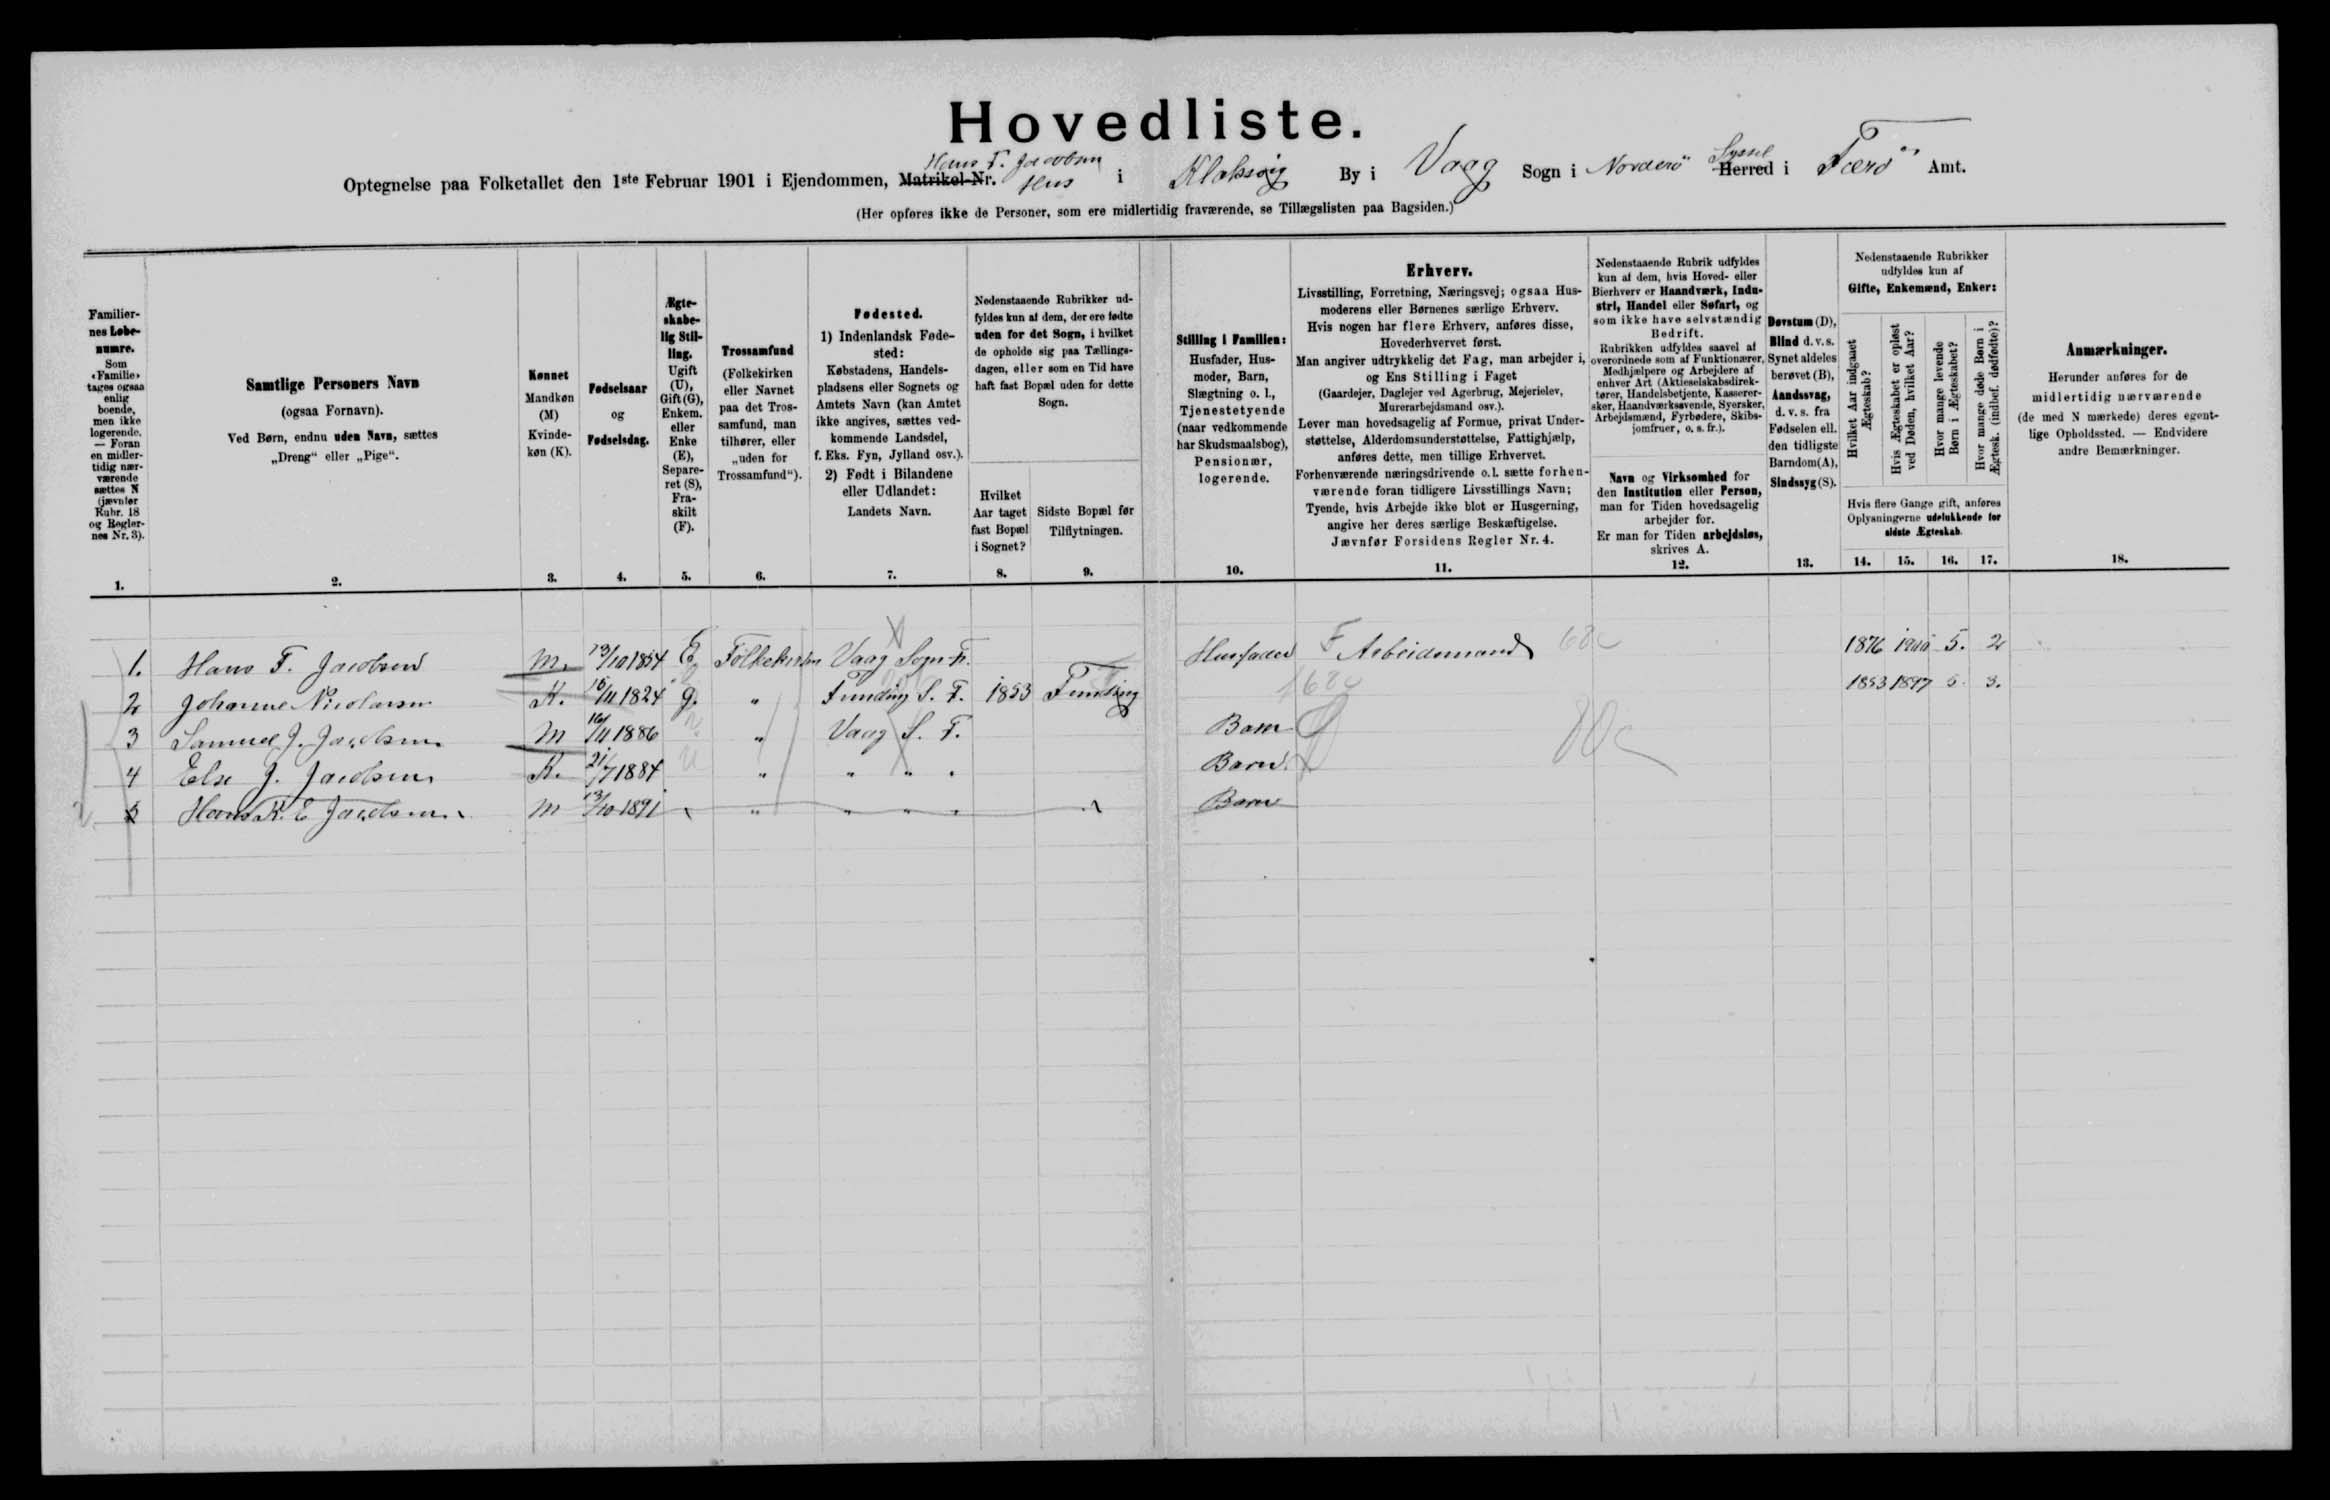 Hovedliste.
Optegnelse paa Folketallet den 1ste Februar 1901 i Ejendommen, Matrikel-Nr. Hans F. Jacobsen Hus i Klaksvig By i Vaag Sogn i Norderö Syssel Herred i Færö Amt.
(Her opføres ikke de Personer, som ere midlertidig fraværende, se Tillægslisten paa Bagsiden.)
Familiernes Løbenumre.
Som «Familie» tages ogsaa enlig boende, men ikke logerende. — Foran en midlertidig nærværende sættes N (jævnfør Rubr. 18 og Reglernes Nr. 3).
Samtlige Personers Navn
(ogsaa Fornavn).
Ved Børn, endnu uden Navn, sættes
„Dreng“ eller „Pige“.
Kønnet
Mandkøn
(M)
Kvinde-
køn (K).
Fødselsaar
og
Fødselsdag.
Ægte-
skabe-
lig Stil-
ling.
Ugift
(U),
Gift (G),
Enkem.
eller
Enke
(E),
Separe-
ret (S),
Fra-
skilt
(F).
Trossamfund
(Folkekirken
eller Navnet
paa det Tros-
samfund, man
tilhører, eller
„uden for
Trossamfund“).
Fødested.
1) Indenlandsk Føde-
sted:
Købstadens, Handels-
pladsens eller Sognets og
Amtets Navn (kan Amtet
ikke angives, sættes ved-
kommende Landsdel,
f. Eks. Fyn, Jylland osv.).
2) Født i Bilandene
eller Udlandet:
Landets Navn.
Nedenstaaende Rubrikker ud-
fyldes kun af dem, der ere fødte
uden for det Sogn, i hvilket
de opholde sig paa Tællings-
dagen, eller som en Tid have
haft fast Bopæl uden for dette
Sogn.
Hvilket
Aar taget
fast Bopæl
i Sognet?
Sidste Bopæl før
Tilflytningen.
Stilling i Familien:
Husfader, Hus-
moder, Barn,
Slægtning o. l.,
Tjenestetyende
(naar vedkommende
har Skudsmaalsbog),
Pensionær,
logerende.
Erhverv.
Livsstilling, Forretning, Næringsvej; ogsaa Hus-
moderens eller Børnenes særlige Erhverv.
Hvis nogen har flere Erhverv, anføres disse,
Hovederhvervet først.
Man angiver udtrykkelig det Fag, man arbejder i,
og Ens Stilling i Faget
(Gaardejer, Daglejer ved Agerbrug, Mejerielev,
Murerarbejdsmand osv.).
Lever man hovedsagelig af Formue, privat Under-
støttelse, Alderdomsunderstøttelse, Fattighjælp,
anføres dette, men tillige Erhvervet.
Forhenværende næringsdrivende o. l. sætte forhen-
værende foran tidligere Livsstillings Navn;
Tyende, hvis Arbejde ikke blot er Husgerning,
angive her deres særlige Beskæftigelse.
Jævnfør Forsidens Regler Nr. 4.
Nedenstaaende Rubrik udfyldes
kun af dem, hvis Hoved- eller
Bierhverv er Haandværk, Indu-
stri, Handel eller Søfart, og
som ikke have selvstændig
Bedrift.
Rubrikken udfyldes saavel af
overordnede som af Funktionærer,
Medhjælpere og Arbejdere af
enhver Art (Aktieselskabsdirek-
tører, Handelsbetjente, Kasserer-
sker, Haandværkssvende, Syersker,
Arbejdsmænd, Fyrbødere, Skibs-
jomfruer, o. s. fr.).
Navn og Virksomhed for
den Institution eller Person,
man for Tiden hovedsagelig
arbejder for.
Er man for Tiden arbejdsløs,
skrives A.
Døvstum (D),
Blind d. v. s.
Synet aldeles
berøvet (B),
Aandssvag,
d. v. s. fra
Fødselen ell.
den tidligste
Barndom (A),
Sindssyg (S).
Nedenstaaende Rubrikker
udfyldes kun af
Gifte, Enkemænd, Enker:
Hvilket Aar indgaaet Ægteskab?
Hvis Ægteskabet er opløst ved Døden, hvilket Aar?
Hvor mange levende Børn i Ægteskabet?
Hvor mange døde Børn i Ægtesk. (indbef. dødfødte)?
Hvis flere Gange gift, anføres
Oplysningerne udelukkende for
sidste Ægteskab.
Anmærkninger.
Herunder anføres for de
midlertidig nærværende
(de med N mærkede) deres egent-
lige Opholdssted. — Endvidere
andre Bemærkninger.
1. 2. 3. 4. 5. 6. 7. 8. 9. 10. 11. 12. 13. 14. 15. 16. 17. 18.
1. Hans F. Jacobsen M. 13/10 1854 E Folkekirken Vaag Sogn F. Husfader F Arbeidsmand 68c 1876 1900 5. 2
2 Johanne Nicolaisen K. 1824 g. " Funding S. F. 1853 Funding 68c 1853 1897 5. 3.
3 Samuel J. Jacobsen M 16/11 1886 " Vaag S. F. Barn
4 Else J. Jacobsen K. 21/7 1884 U " " " . Barn 80c
5 Hans K. E Jacobsen M 13/10 1891 " " " " Barn